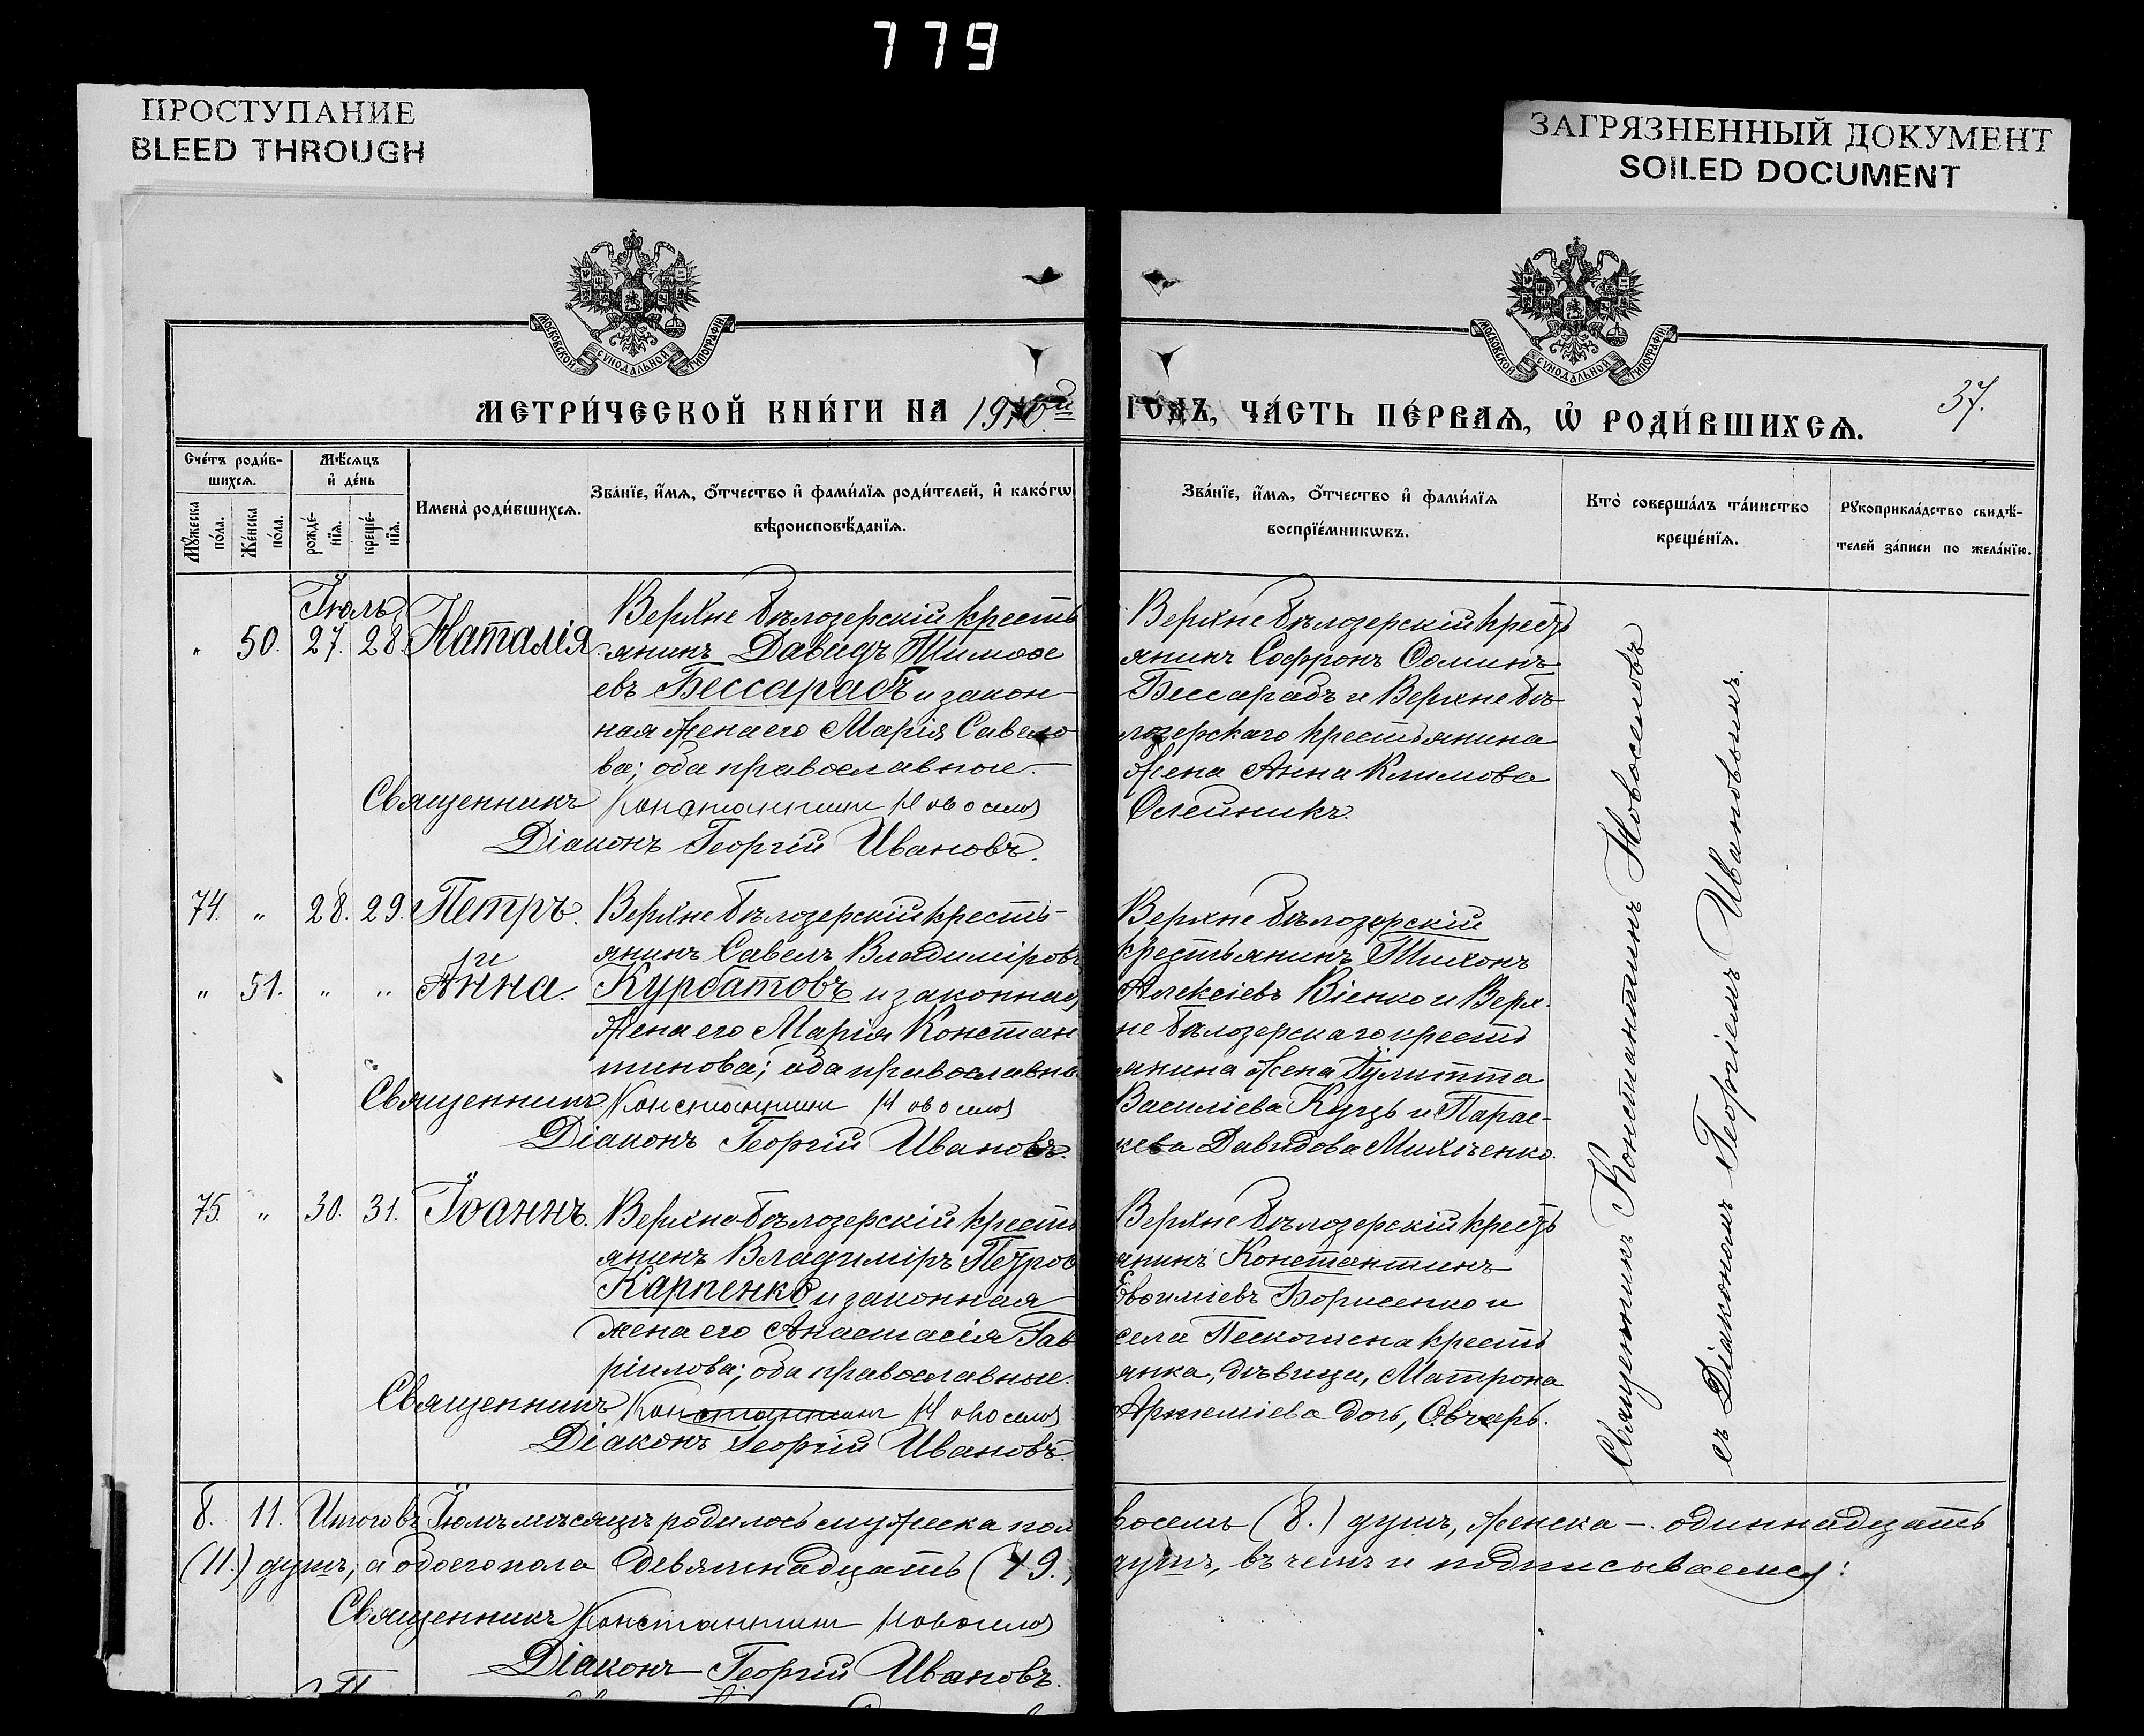 779
ПРОСТУПАНИЕ
BLEED THROUGH
ЗАГРЯЗНЕННЫЙ ДОКУМЕНТ
SOILED DOCUMENT
МОСКОВСКОЙ СУНОДАЛЬНОЙ ТИПОГРАФІИ
МОСКОВСКОЙ СУНОДАЛЬНОЙ ТИПОГРАФІИ
МЕТРИ́ЧЕСКОЙ КНИ́ГИ НА 1910й
ГОДЪ, ЧА́СТЬ ПЕ́РВАѦ, Ѡ҆ РОДИ́ВШИХСѦ.
37.
Сче́тъ роди́в-
шихсѧ.
Мѣ́сѧцъ
и҆ де́нь
Мꙋ́жеска
по́ла.
Же́нска
по́ла.
рожде́-
нїѧ.
креще́-
нїѧ.
Имена̀ роди́вшихсѧ.
Зва́нїе, и҆́мѧ, ѻ҆́тчество и҆ фами́лїѧ роди́телей, и҆ како́гѡ
вѣроисповѣ́данїѧ.
Зва́нїе, и҆́мѧ, ѻ҆́тчество и҆ фами́лїѧ
воспрїе́мникѡвъ.
Кто̀ соверша́лъ та́инство
креще́нїѧ.
Рꙋкоприкла́дство свидѣ́-
телей за́писи по жела́нїю.
Іюль
" 50. 27. 28. Наталія
Верхне бѣлозерскій кресть
янинъ Давидъ Тимоѳе
евъ Бессарабъ и закон-
ная жена его Марія Савело
ва; оба православные.
Священникъ Константинъ Новоселов
Діаконъ Георгій Ивановъ.
Верхне бѣлозерскій кресть
янинъ Софронъ Ѳоминъ
Бессарабъ и Верхне бѣ-
лозерскаго крестьянина
жена Анна Климова
Олейникъ.
74. " 28. 29. Петръ.
и
" 51. " " Анна.
Верхне бѣлозерскій кресть-
янинъ Савелъ Владиміровъ
Курбатовъ и законная
жена его Марія Констан
тинова; оба православны
Священникъ Константинъ Новоселов
Діаконъ Георгій Ивановъ.
Верхне бѣлозерскій
крестьянинъ Тихонъ
Алексіевъ Біенко и Верх-
не бѣлозерскаго кресть
янина жена Іулитта
Василіева Куць и Парас-
кева Давидова Михиенко.
75. " 30. 31. Іоаннъ.
Верхне-бѣлозерскій кресть
янинъ Владиміръ Петров
Карпенко и законная
жена его Анастасія Гав
ріилова; оба православные.
Священникъ Константинъ Новоселов
Діаконъ Георгій Ивановъ.
Верхне бѣлозерскій кресть
янинъ Константинъ
Евѳиміевъ Борисенко и
села Пескошена кресть
янка, дѣвица, Матрона
Артеміева дочь, Овчаръ.
Священникъ Константинъ Новоселовъ
съ Діакономъ Георгіемъ Ивановымъ.
8. 11. Итого въ Іюлѣ мѣсяцѣ родилось мужеска пол
восемь (8.) душъ, женска - одиннадцать
(11.) душъ, а обоего пола девятнадцать (19.)
душъ, въ чемъ и подписываемся:
Священникъ Константинъ Новоселов
Діаконъ Георгій Ивановъ.